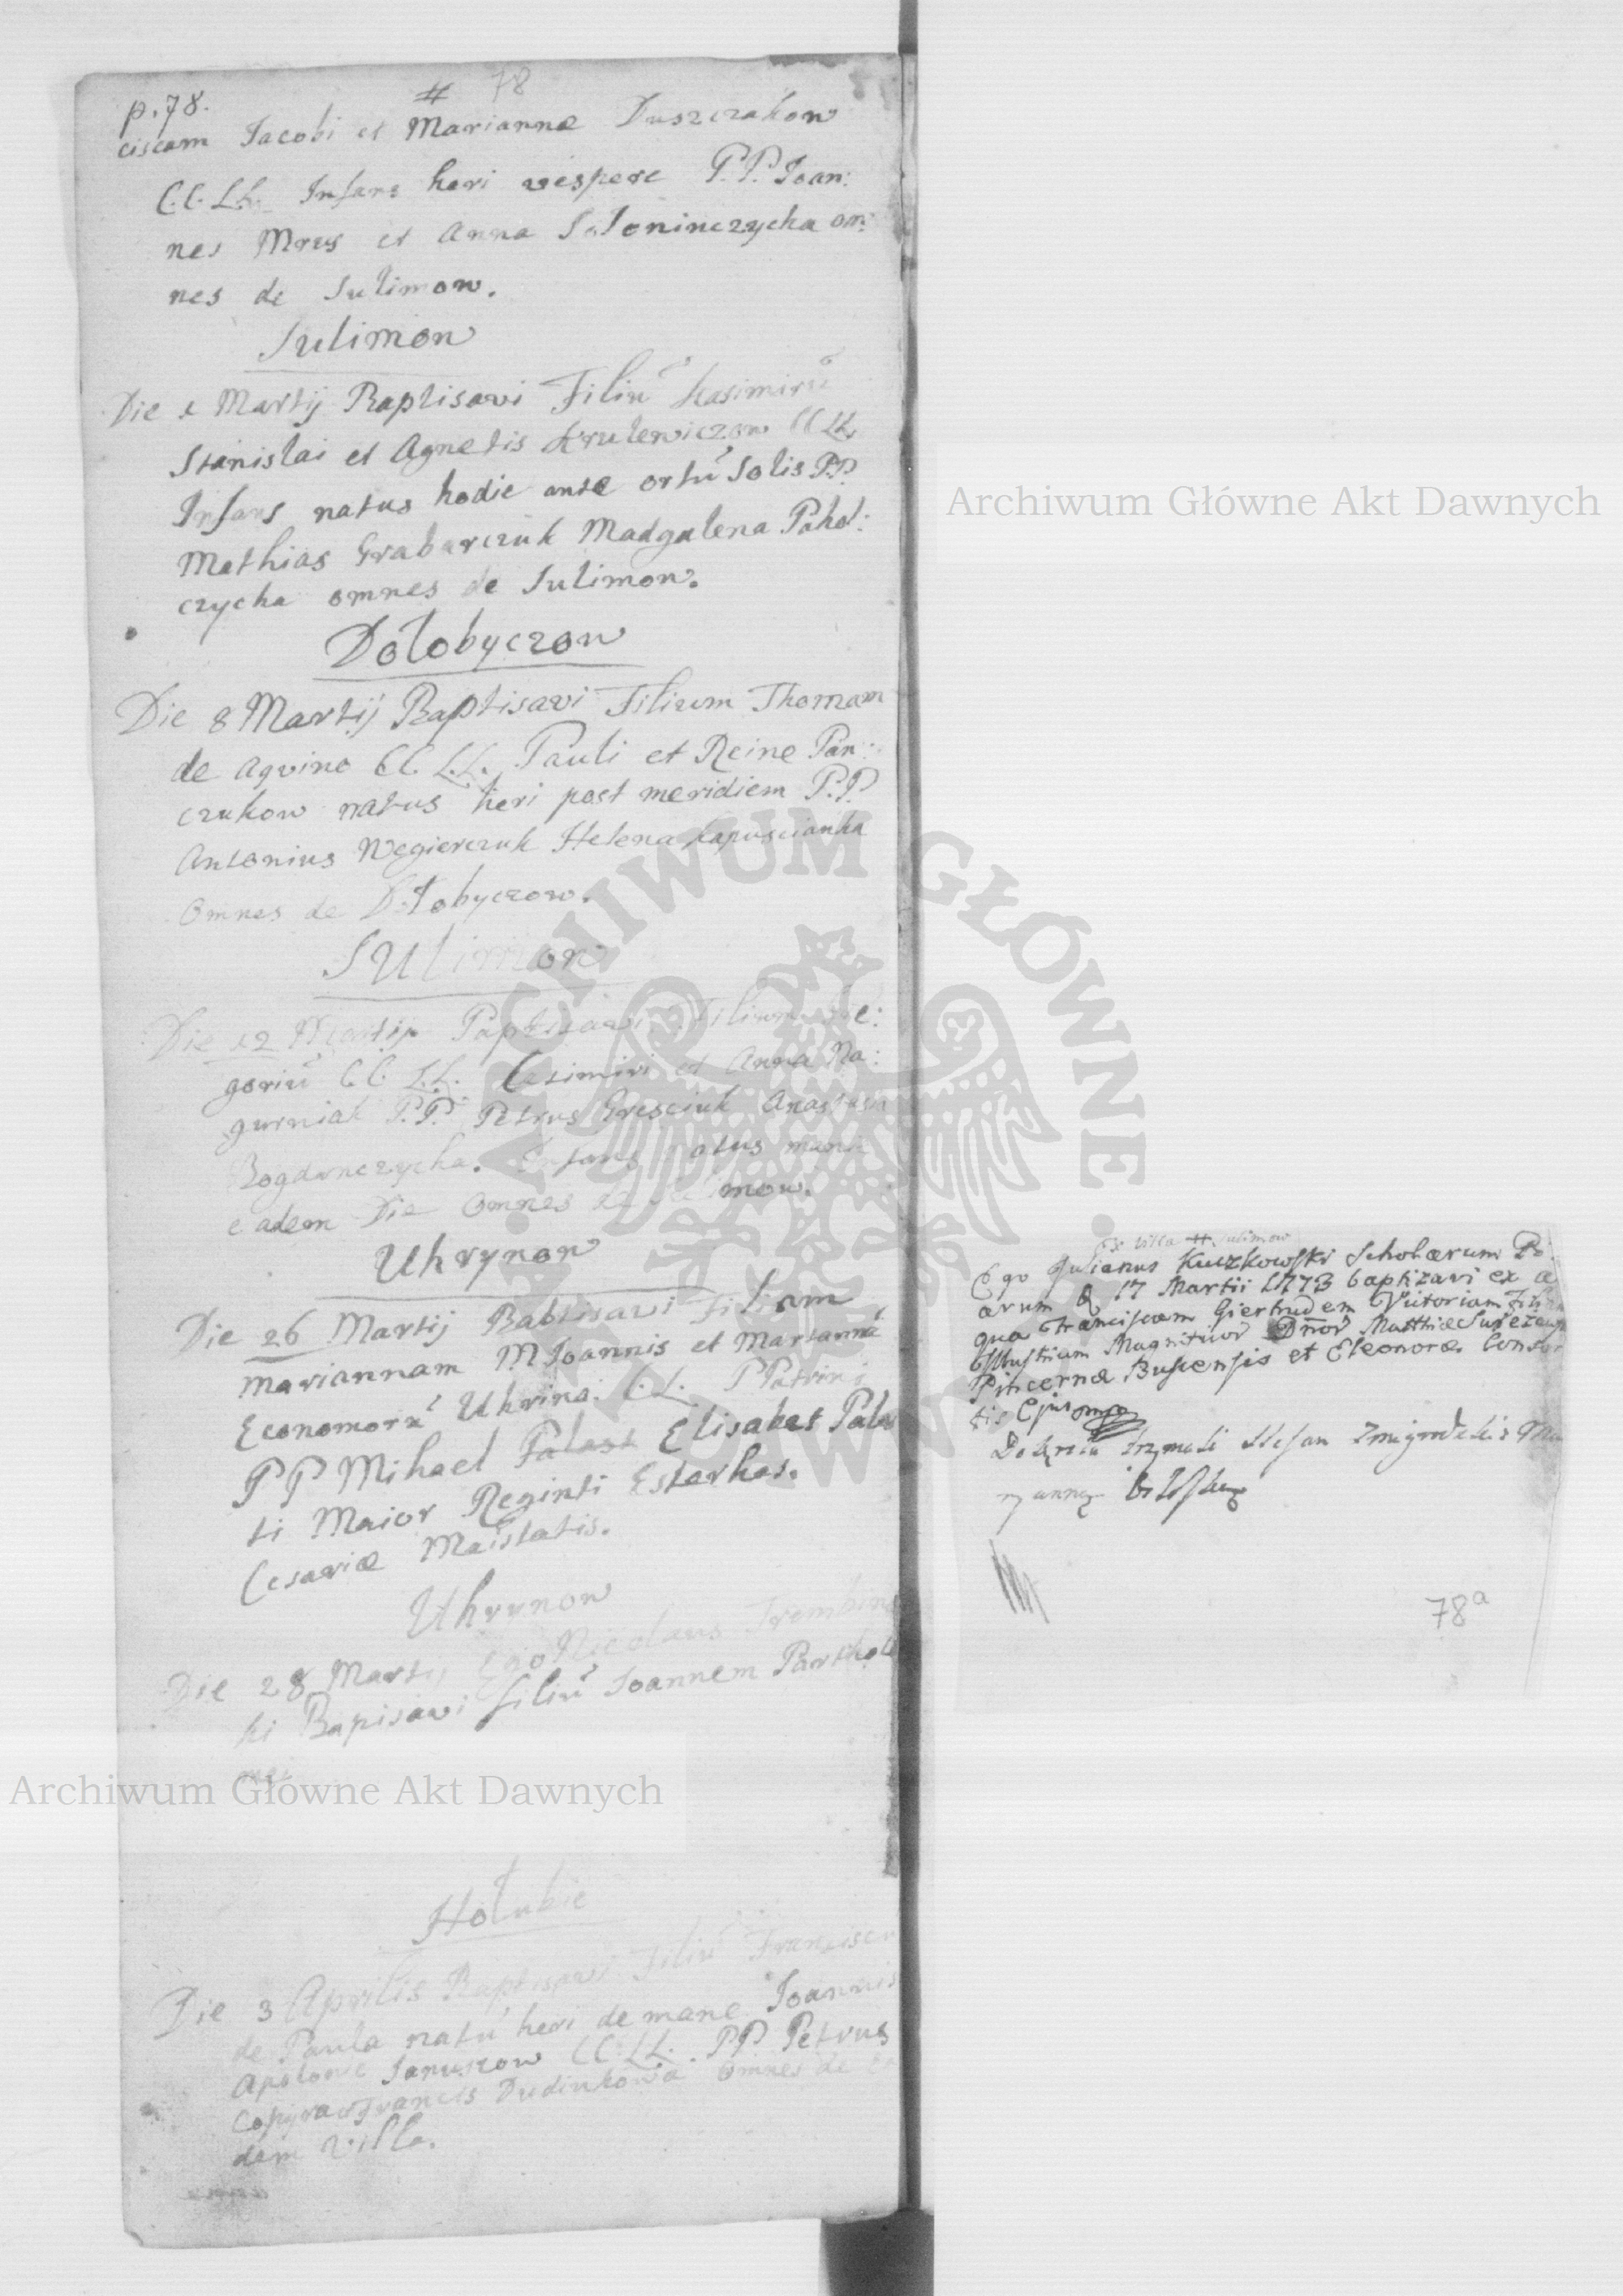 p. 78. # 78
ciscam Jacobi et Mariannæ Duszczakow
C.C. LL. Infans heri vespere P.P. Joan:
nes Mrus et Anna Soloninczycha om:
nes de Sulimow.
Sulimow
Die 1 Martij Baptisavi Filiũ Kasimirũ
Stanislai et Agnetis Krulewiczow CC LL
Infans natus hodie ante ortũ Solis P.P.
Mathias Grabarczuk Madgalena Pahol:
czycha omnes de Sulimow.
Dołobyczow
Die 8 Martij Baptisavi Filium Thomam
de Aqvino CC. LL. Pauli et Reine Pan:
czukow natus heri post meridiem P.P.
Antonius Wegierczuk Helena Kapuscianka
Omnes de Dołobyczow.
Sulimow
Die 12 Martij Baptisavi Filium Gre:
goriũ CC LL. Casimiri et Anna Na:
gurniak P.P. Petrus Gresciuk Anastasia
Bogdanczycha. Infans natus mane
eadem Die Omnes de Sulimow.
Uhrynow
Die 26 Martij Babtisavi Filiam
Mariannam M Joannis et Mariannæ
Economorũ Uhrino: C.L. PPatrini
PP Mihael Palast Elisabet Pala
ti Maior Reginti Esterhas.
Cesariæ Maistatis.
Uhrynow
Die 28 Martij Ego Nicolaus Trembins
ki Bapisavi filiũ Joannem Parthole
mei
Hołubie
Die 3 Aprilis Baptisavi Filiũ Franciscu
de Paula natũ heri de mane Joannis
Apolonie Januszow CC. LL. PP. Petrus
Francis Dudiukowa omnes de ea
dem villa.
Ex villa # Sulimow
Ego Julianus Kuczkowski Scholarum Pi
arum d 17 Martii 1773 baptizavi ex a
qua Franciscam Giertrudem Victoriam Filiam
Illustrium Magnituor Dnor Matthiæ
Pincernæ Buscensis et Eleonoræ Consor
tis Ejus
Do trzymali Stefan Zmigrodzki z Ma
ryanną
78a
Archiwum Główne Akt Dawnych
Archiwum Główne Akt Dawnych
ARCHIWUM GŁÓWNE AKT DAWNYCH